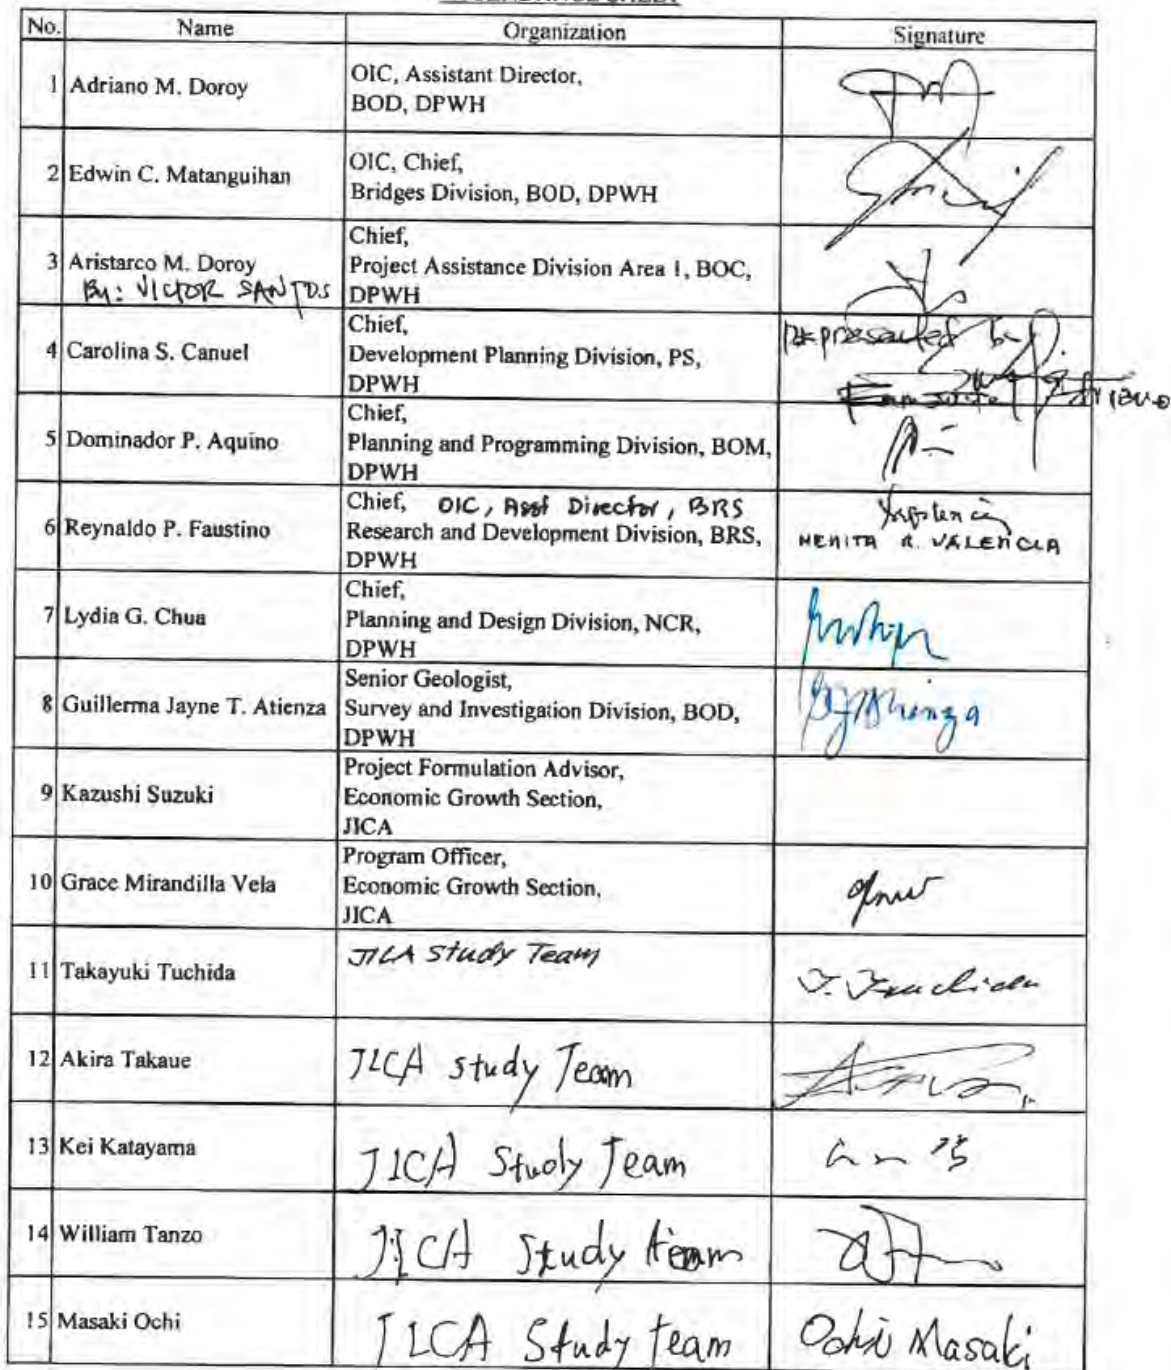 No. Name Organization Signature
1 Adriano M. Doroy
OIC, Assistant Director,
BOD, DPWH
2 Edwin C. Matanguihan
OIC, Chief,
Bridges Division, BOD, DPWH
3 Aristarco M. Doroy
By: VICTOR SANTOS
Chief,
Project Assistance Division Area 1, BOC,
DPWH
4 Carolina S. Canuel
Chief,
Development Planning Division, PS,
DPWH
Represented by
5 Dominador P. Aquino
Chief,
Planning and Programming Division, BOM,
DPWH
6 Reynaldo P. Faustino
Chief, OIC, Asst Director, BRS
Research and Development Division, BRS,
DPWH
NEMITA R. VALENCIA
7 Lydia G. Chua
Chief,
Planning and Design Division, NCR,
DPWH
8 Guillerma Jayne T. Atienza
Senior Geologist,
Survey and Investigation Division, BOD,
DPWH
9 Kazushi Suzuki
Project Formulation Advisor,
Economic Growth Section,
JICA
10 Grace Mirandilla Vela
Program Officer,
Economic Growth Section,
JICA
11 Takayuki Tuchida
JICA Study Team
T. Tsuchida
12 Akira Takaue
JICA Study Team
13 Kei Katayama
JICA Study Team
14 William Tanzo
JICA Study Team
15 Masaki Ochi
JICA Study Team
Ochi Masaki